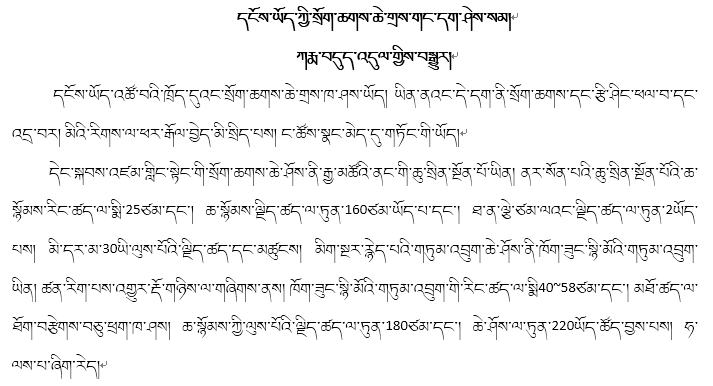 དངོས་ཡོད་ཀྱི་སྲོག་ཆགས་ཆེ་གྲས་གང་དག་ཤེས་སམ།
ཀརྨ་བདུད་འདུལ་གྱིས་བསྒྱུར།
དངོས་ཡོད་འཚོ་བའི་ཁྲོད་དུའང་སྲོག་ཆགས་ཆེ་གྲས་ཁ་ཤས་ཡོད། ཡིན་ནའང་དེ་དག་ནི་སྲོག་ཆགས་དང་རྩི་ཤིང་ཕལ་བ་དང་
འདྲ་བར། མིའི་རིགས་ལ་ཕར་རྒོལ་བྱེད་མི་སྲིད་པས། ང་ཚོས་སྣང་མེད་དུ་གཏོང་གི་ཡོད།
དེང་སྐབས་འཛམ་གླིང་སྟེང་གི་སྲོག་ཆགས་ཆེ་ཤོས་ནི་རྒྱ་མཚོའི་ནང་གི་ཆུ་སྲིན་སྔོན་པོ་ཡིན། ནར་སོན་པའི་ཆུ་སྲིན་སྔོན་པོའི་ཆ་
སྙོམས་རིང་ཚད་ལ་སྨི་25ཙམ་དང་། ཆ་སྙོམས་ལྗིད་ཚད་ལ་ཏུན་160ཙམ་ཡོད་པ་དང་། ཐ་ན་ལྕེ་ཙམ་ལའང་ལྗིད་ཚད་ལ་ཏུན་2ཡོད་
པས། མི་དར་མ་30ཡི་ལུས་པོའི་ལྗིད་ཚད་དང་མཚུངས། མིག་སྔར་རྙེད་པའི་གཏུམ་འབྲུག་ཆེ་ཤོས་ནི་ཁོག་ཟུང་སྙི་མོའི་གཏུམ་འབྲུག་
ཡིན། ཚན་རིག་པས་འགྱུར་རྡོ་གཉིས་ལ་གཞིགས་ནས། ཁོག་ཟུང་སྙི་མོའི་གཏུམ་འབྲུག་གི་རིང་ཚད་ལ་སྨི40~58ཙམ་དང་། མཐོ་ཚད་ལ་
ཐོག་བརྩེགས་བཅུ་ཕྲག་ཁ་ཤས། ཆ་སྙོམས་ཀྱི་ལུས་པོའི་ལྗིད་ཚད་ལ་ཏུན་180ཙམ་དང་། ཆེ་ཤོས་ལ་ཏུན་220ཡོད་ཚོད་བྱས་པས། ཧ་
ལས་པ་ཞིག་རེད།